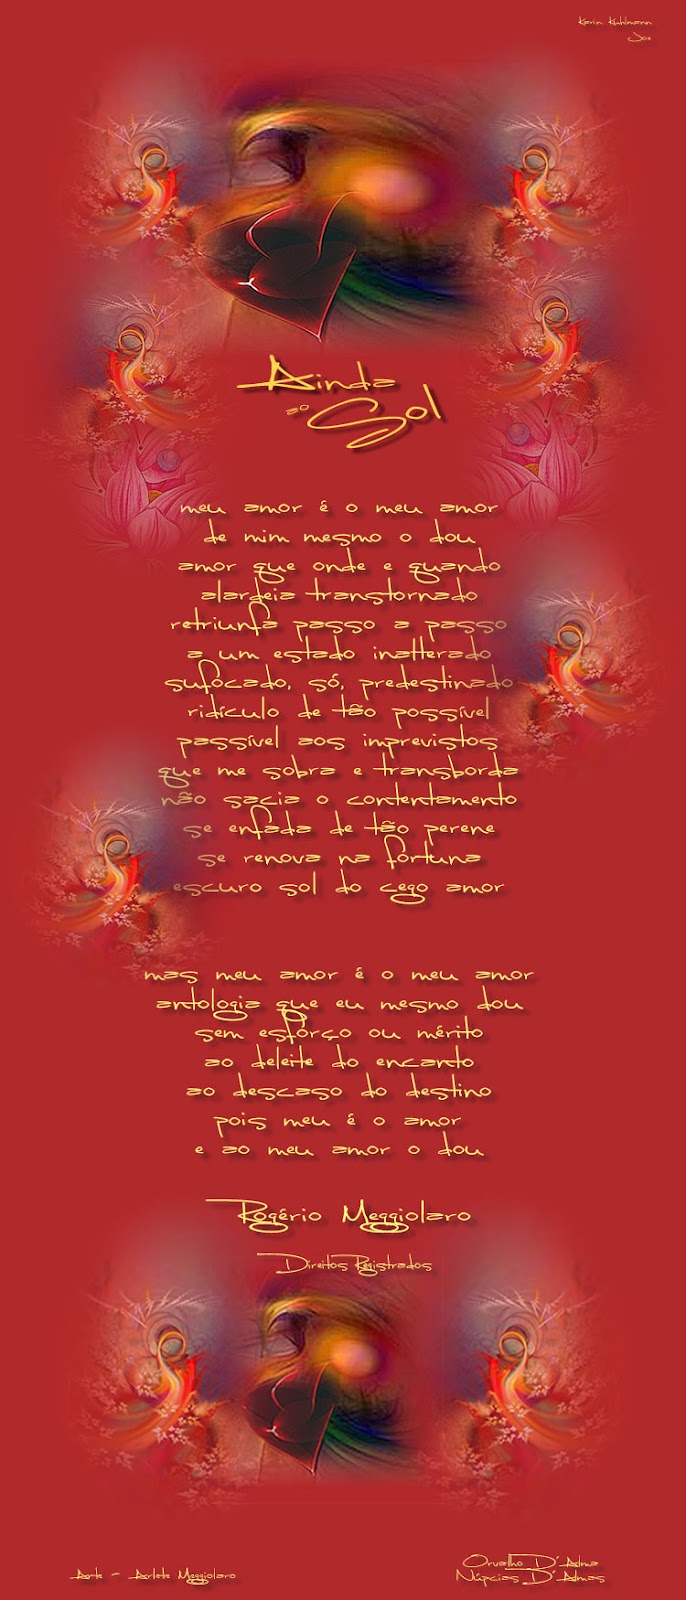 Karin Kuhlmann
Ainda
ao Sol
meu amor é o meu amor
de mim mesmo o dou
amor que onde e quando
alardeia transtornado
retriunfa passo a passo
a um estado inalterado
sufocado, só, predestinado
ridículo de tão possível
passível aos imprevistos
que me sobra e transborda
não sacia o contentamento
se enfada de tão perene
se renova na fortuna
escuro sol do cego amor
mas meu amor é o meu amor
antologia que eu mesmo dou
sem esforço ou mérito
ao deleite do encanto
ao descaso do destino
pois meu é o amor
e ao meu amor o dou
Rogério Meggiolaro
Direitos Registrados
Orvalho D'Alma
Arte - Arlete Meggiolaro
Núpcias D'Almas